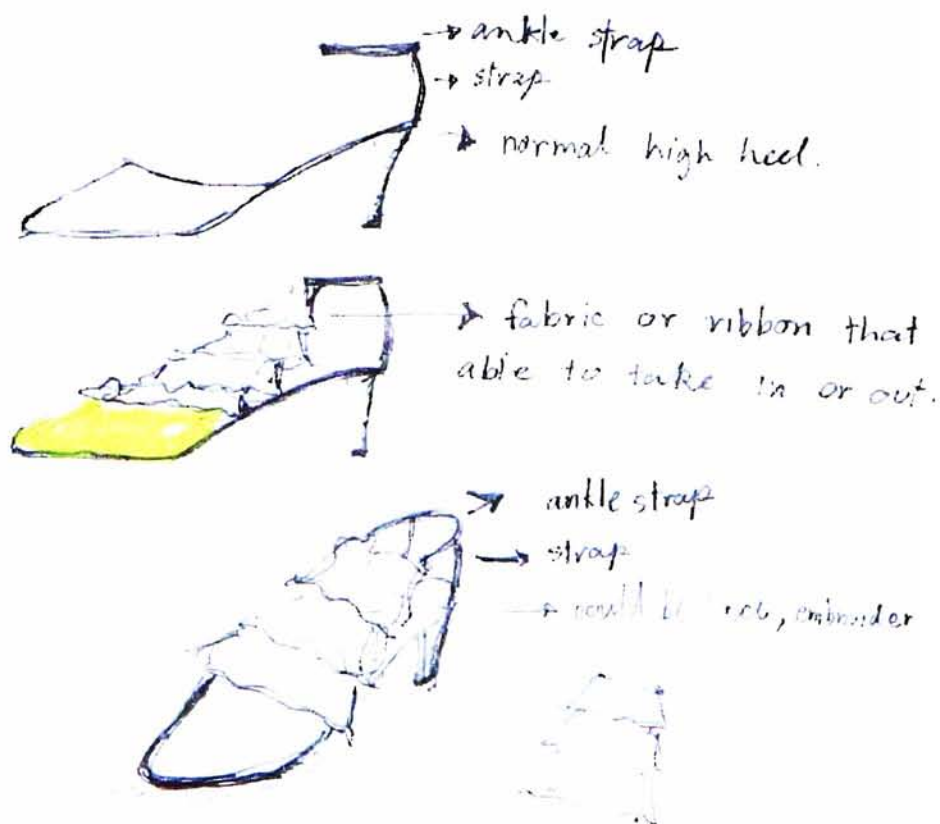 ankle strap
strap
normal high heel.
fabric or ribbon that
able to take in or out.
ankle strap
strap
could be , embroider